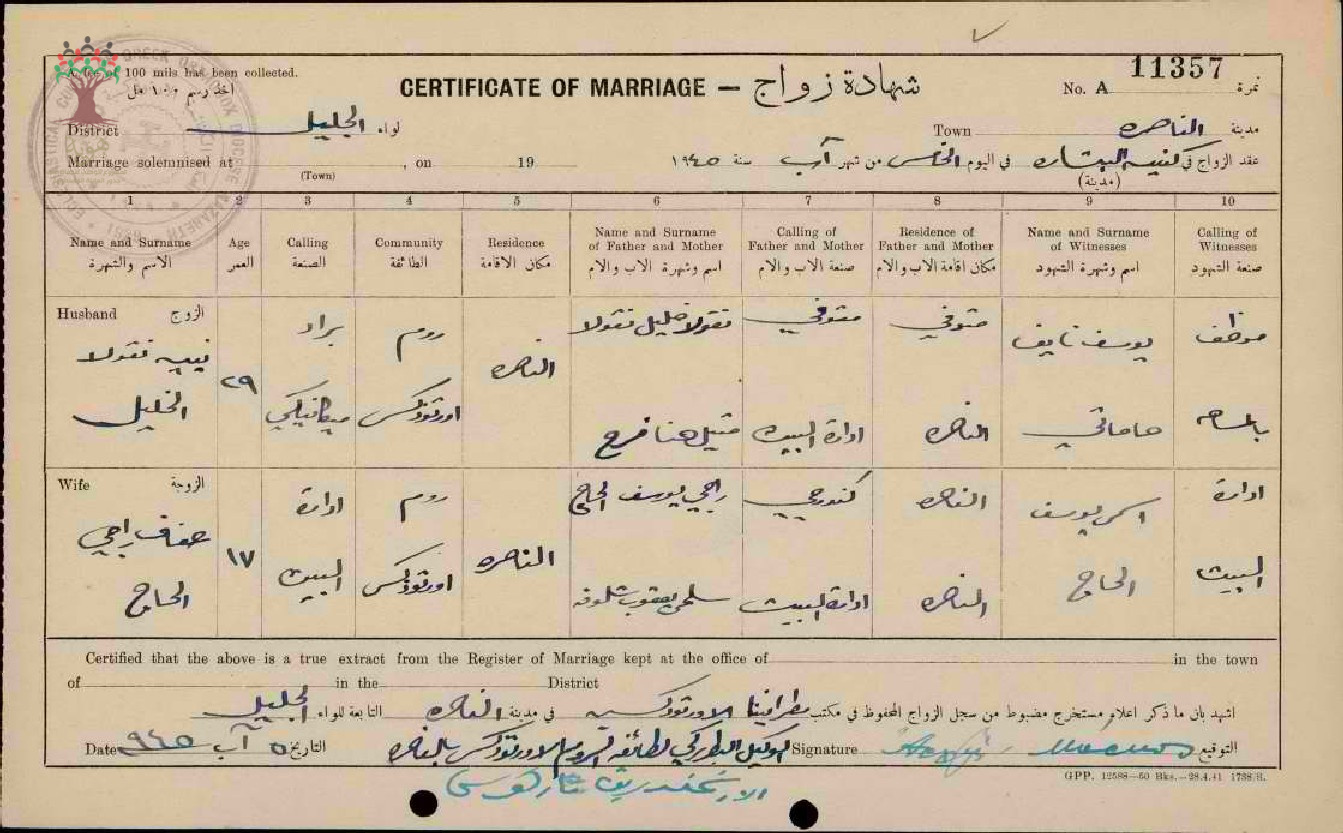 A fee of 100 mils has been collected.
CERTIFICATE OF MARRIAGE — شهادة زواج
No. A 11357 نمرة
District الجليل لواء
Town الناصره مدينة
Marriage solemnised at , on 19
(Town)
عقد الزواج في كنيسة البشاره في اليوم الخامس من شهر آب سنة ١٩٤٥
(مدينة)
1 2 3 4 5 6 7 8 9 10
Name and Surname
الاسم والشهرة
Age
العمر
Calling
الصنعة
Community
الطائفة
Residence
مكان الاقامة
Name and Surname
of Father and Mother
اسم وشهرة الاب والام
Calling of
Father and Mother
صنعة الاب والام
Residence of
Father and Mother
مكان اقامة الاب والام
Name and Surname
of Witnesses
اسم وشهرة الشهود
Calling of
Witnesses
صنعة الشهود
Husband الزوج
نبيه نقولا
الخليل
٢٩
براد
ميكانيكي
روم
اورثوذكس
الناصره
نقولا خليل نقولا
حنا فرح
متوفي
ادارة البيت
متوفي
الناصره
يوسف نايف
موظف
Wife الزوجة
عفاف راجي
الحاج
١٧
ادارة
البيت
روم
اورثوذكس
الناصره
راجي يوسف الحاج
سلمى يعقوب
كندرجي
ادارة البيت
الناصره
الناصره
يوسف
الحاج
ادارة
البيت
Certified that the above is a true extract from the Register of Marriage kept at the office of in the town
of in the District
اشهد بان ما ذكر اعلاه مستخرج مضبوط من سجل الزواج المحفوظ في مكتب مطرانيتنا الاورثوذكسيه في مدينة الناصره التابعة للواء الجليل
Date ٩٤٥ آب ٥ التاريخ الوكيل البطريركي لطائفة الروم الاورثوذكس بالناصره Signature التوقيع
GPP. 12588—50 Bks.—28.4.41 1738/B.